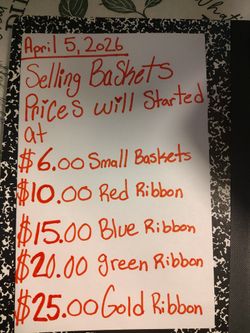 April 5, 2026
Selling Baskets
Prices will Started
at
$6.00 Small Baskets
$10.00 Red Ribbon
$15.00 Blue Ribbon
$20.00 green Ribbon
$25.00 Gold Ribbon